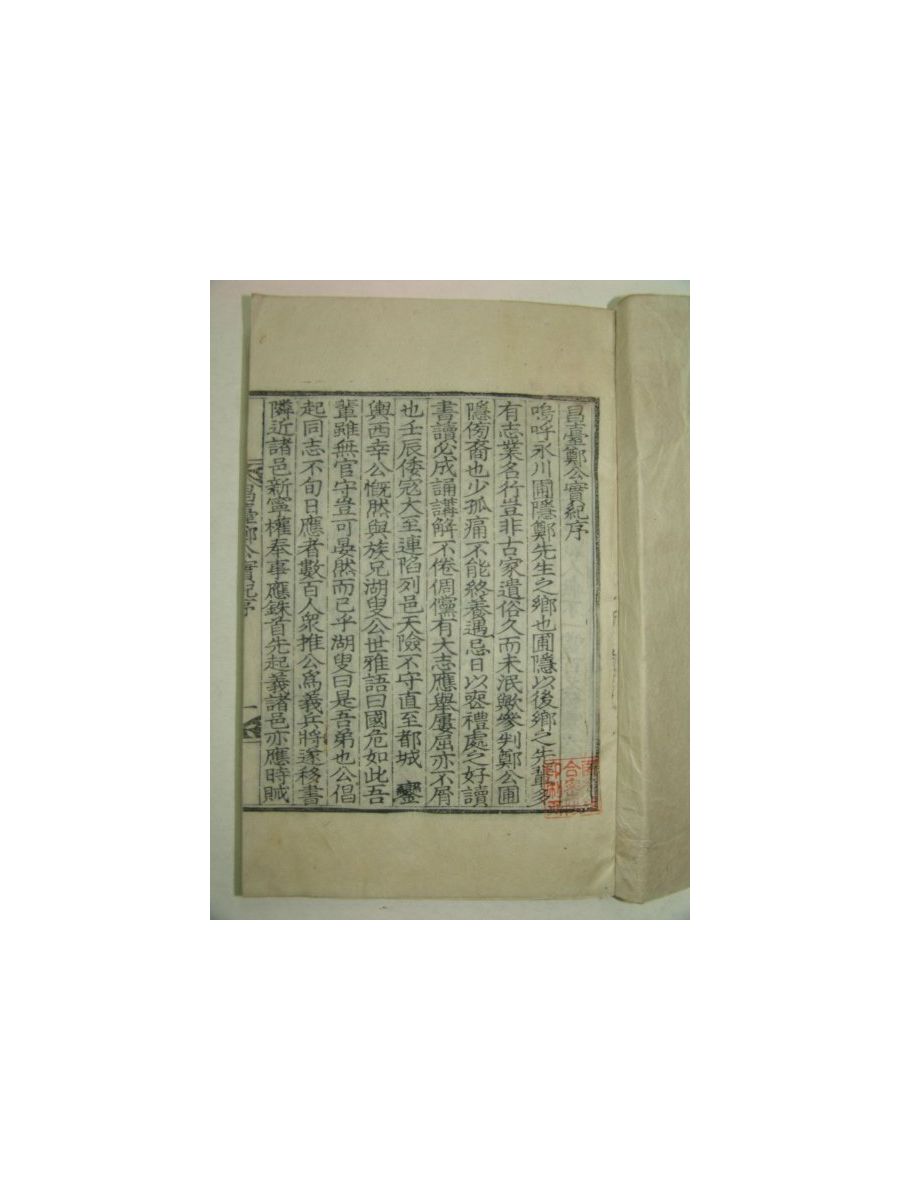 昌臺鄭公實紀序
嗚呼永川圃隱鄭先生之鄕也圃隱以後鄕之先輩多
有志業名行豈非古家遺俗久而未泯歟參判鄭公圃
隱傍裔也少孤痛不能終養遇忌日以喪禮處之好讀
書讀必成誦講解不倦倜儻有大志應擧屢屈亦不屑
也壬辰倭寇大至連陷列邑天險不守直至都城 鑾
輿西幸公慨然與族兄湖叟公世雅語曰國危如此吾
輩雖無官守豈可晏然而已乎湖叟曰是吾弟也公倡
起同志不旬日應者數百人衆推公爲義兵將遂移書
隣近諸邑新寧權奉事應銖首先起義諸邑亦應時賊
昌臺鄭公實紀序
一